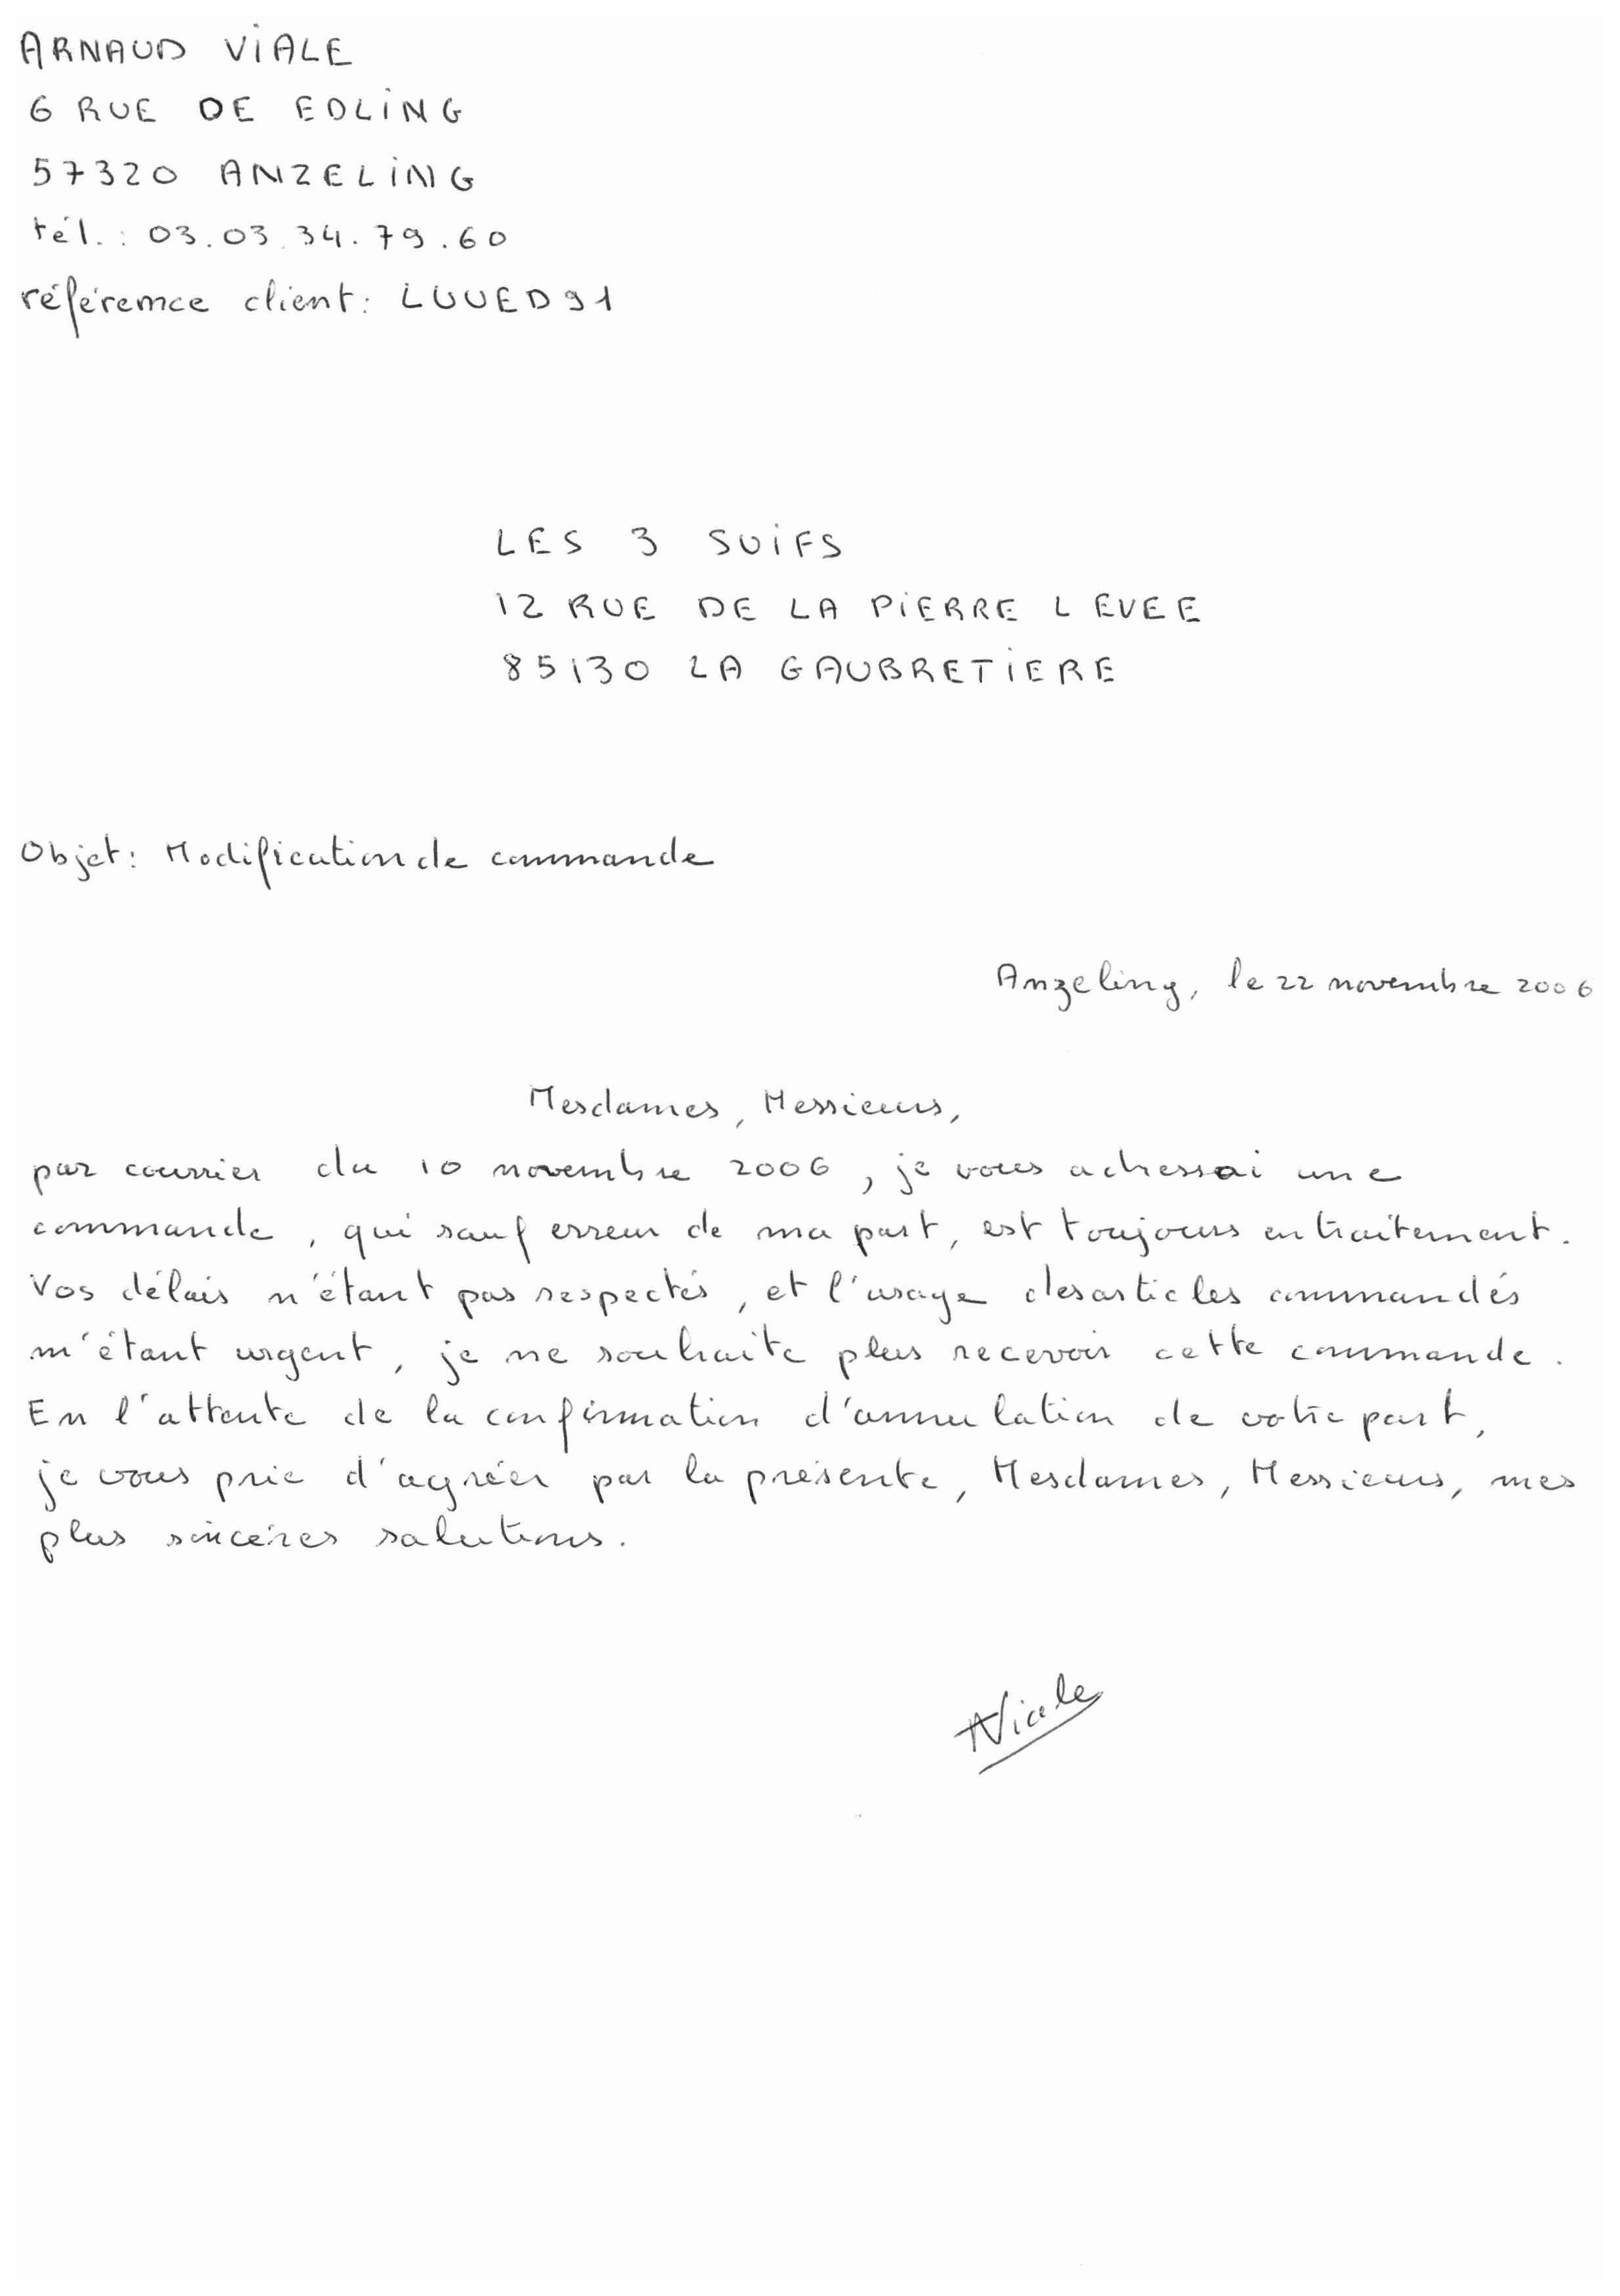 ARNAUD VIALE
6 RUE DE EDLING
57320 ANZELING
tél. : 03.03.34.79.60
référence client : LUUED91
LES 3 SUIFS
12 RUE DE LA PIERRE LEVEE
85130 LA GAUBRETIERE
Objet : Modification de commande
Anzeling, le 22 novembre 2006
Mesdames, Messieurs,
par courrier du 10 novembre 2006, je vous adressai une
commande, qui sauf erreur de ma part, est toujours en traitement.
Vos délais n'étant pas respectés, et l'usage des articles commandés
m'étant urgent, je ne souhaite plus recevoir cette commande.
En l'attente de la confirmation d'annulation de votre part,
je vous prie d'agréer par la présente, Mesdames, Messieurs, mes
plus sincères salutions.
AViale